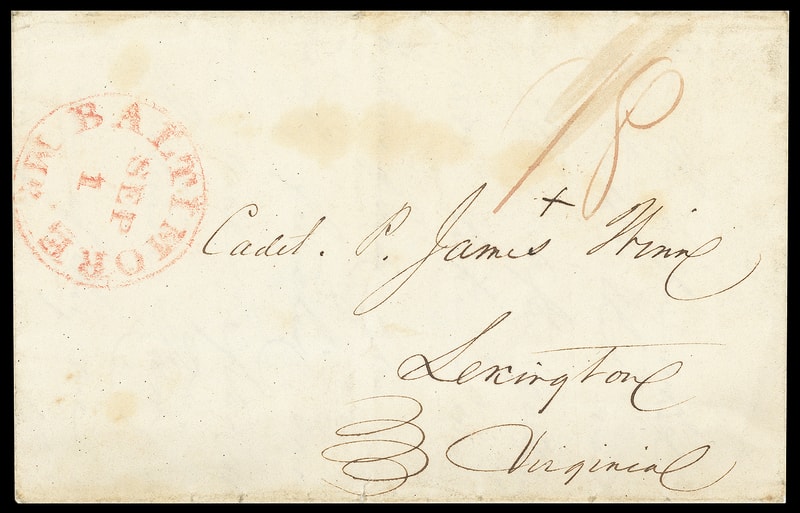 BALTIMORE Md.
SEP
1
18
+
Cadet. P. James Winn
Lexington
Virginia